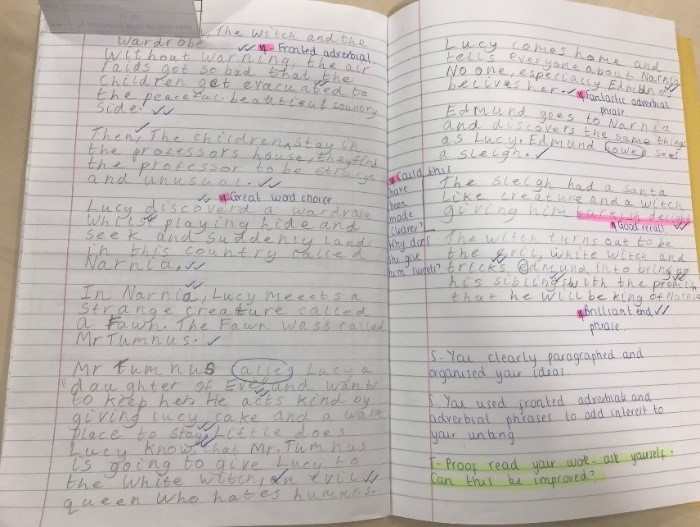 The Witch and the
Wardrobe
Fronted adverbial
Without warning, the air
raids got so bad that the
children get evacuated to
the peaceful beautiful country
side.
Then, The children stay in
the professors house, they find
the professor to be strange
and unusual.
Great word choice
Lucy discoverd a wardrobe
Whilst playing hide and
seek and suddenly lands
in this country called
Narnia,
In Narnia, Lucy meeets a
strange creature called
a Fawn. The Fawn wass called
Mr Tumnus.
Mr tum nus calles Lucy a
daughter of Eve, and wants
to keep her. He acts kind by
giving lucy cake and a warm
place to stay. Little does
Lucy know that Mr. Tumnus
is going to give Lucy to
the White witch, an evil
queen who hates humans.
Lucy comes home and
tells everyone about Narnia
No one, especially Edmund
belives her.
Fantastic adverbial
phrase
Edmund goes to Narnia
and discovers the same things
as Lucy. Edmund sees
a sleigh.
Could this
have
been
made
clearer?
Why does
she give
him sweets?
The sleigh had a santa
Like creature and a witch
giving him turkish delight
Good recall
The witch turns out to be
the evil, white Witch and
tricks Edmund into bringing
his siblings with the promise
that he will be king of Narnia
Brilliant end
phrase
S- You clearly paragraphed and
organised your ideas
S- You used fronted adverbials and
adverbial phrases to add interest to
your writing
T- Proof read your work- ask yourself.
Can this be improved?